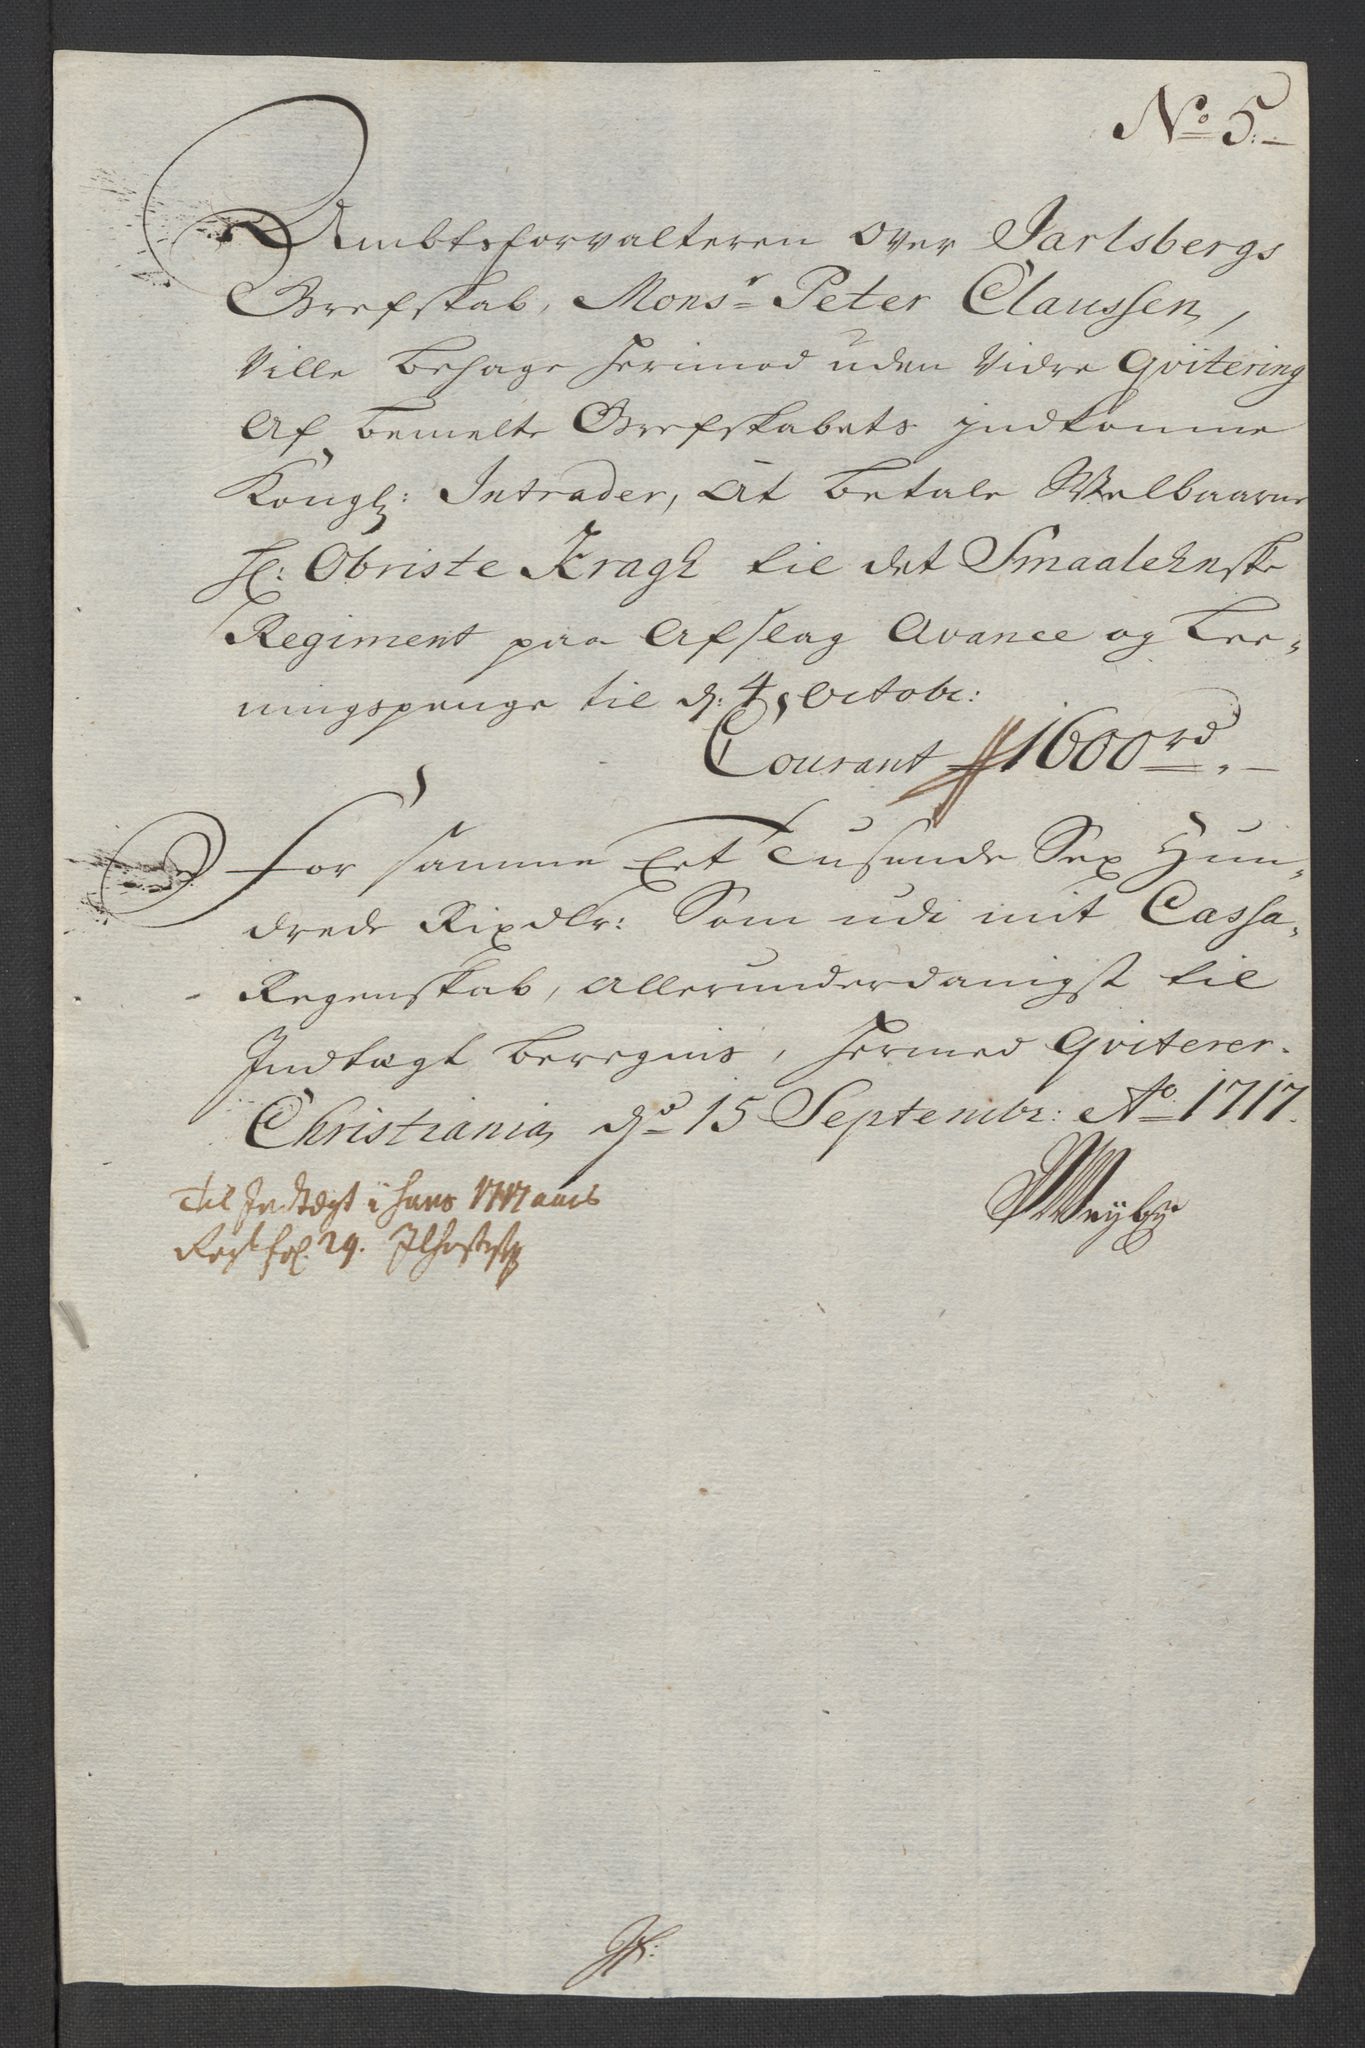 No 5.
Ambtsforvalteren over Jarlsbergs
Grefskab, Monsr Peter Claussen,
Ville behage herimod uden vidre Qvitering
Af bemelte Grefskabets indkomme
Kongl: Intrader, At betale Welbaarne
H: Obriste Kragh til det Smaalehnske
Regiment paa Afslag Avance og Lee-
ningspenge til d: 4 Octobr:
Courant 1600 rd.
For samme Eet Tusende Sex Hun-
drede Rixdlr: Som udi mit Cassa-
Regenskab, allerunderdanigst til
Indtægt beregnis, hermed Qviterer.
Christiania do 15 Septembr: Ao 1717.
Til Indtægt i hans 1717 aars
Regsk fol. 29.